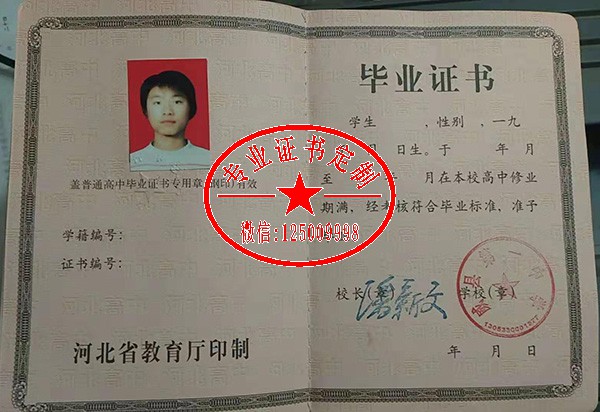 盖普通高中毕业证书专用章(钢印)有效
学籍编号：
证书编号：
河北省教育厅印制
毕业证书
学生 ，性别 ，一九
日生。于 年 月
至 年 月在本校高中修业
期满，经考核符合毕业标准，准予
校长(章) 学校(章)
年 月 日
专业证书定制
微信:125009998